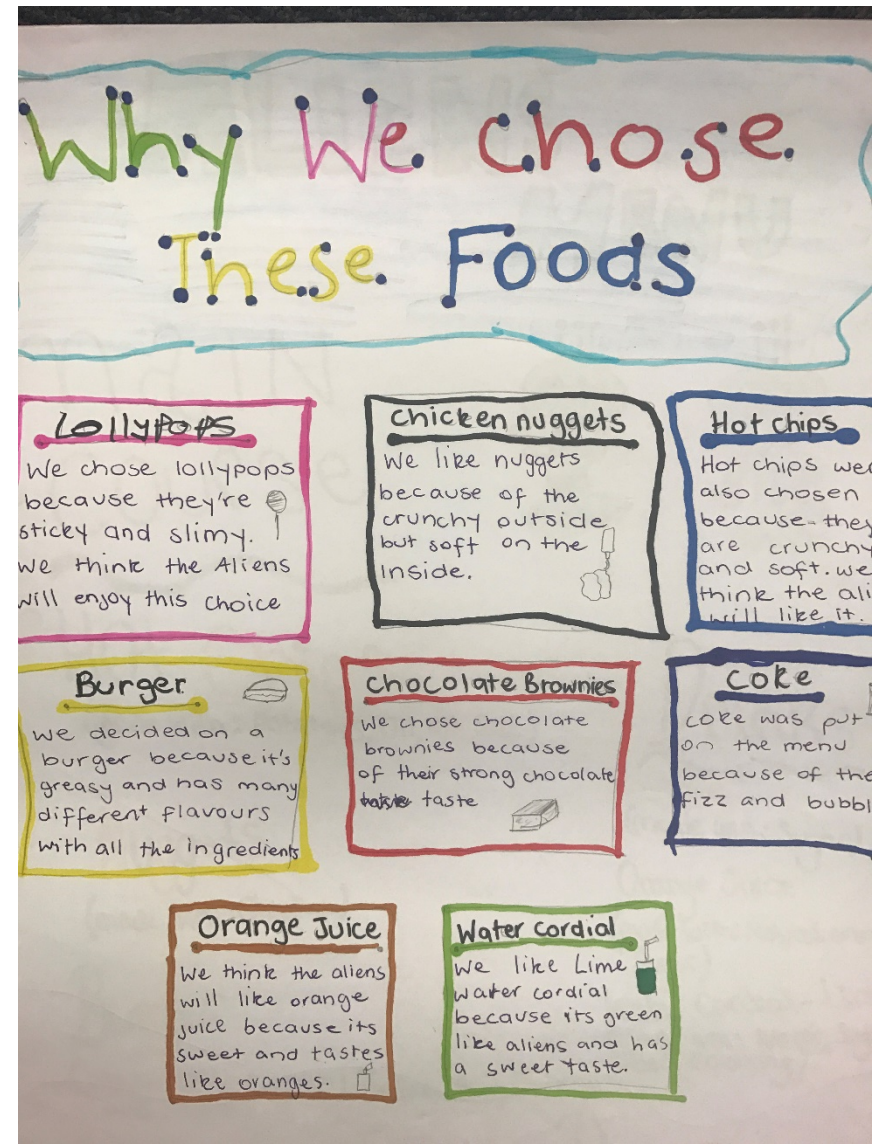 Why We chose
These Foods
Lollypops
We chose lollypops
because they're
sticky and slimy.
we think the Aliens
will enjoy this choice
chicken nuggets
We like nuggets
because of the
crunchy outside
but soft on the
inside.
Hot chips
Hot chips
also chosen
because they
are crunchy
and soft. we
think the
will like it.
Burger
we decided on a
burger because it's
greasy and has many
different flavours
with all the ingredients
chocolate Brownies
We chose chocolate
brownies because
of their strong chocolate
taste
coke
coke was put
on the menu
because of the
fizz and
Orange Juice
We think the aliens
will like orange
juice because its
sweet and tastes
like oranges.
Water cordial
we like Lime
water cordial
because its green
like aliens and has
a sweet taste.